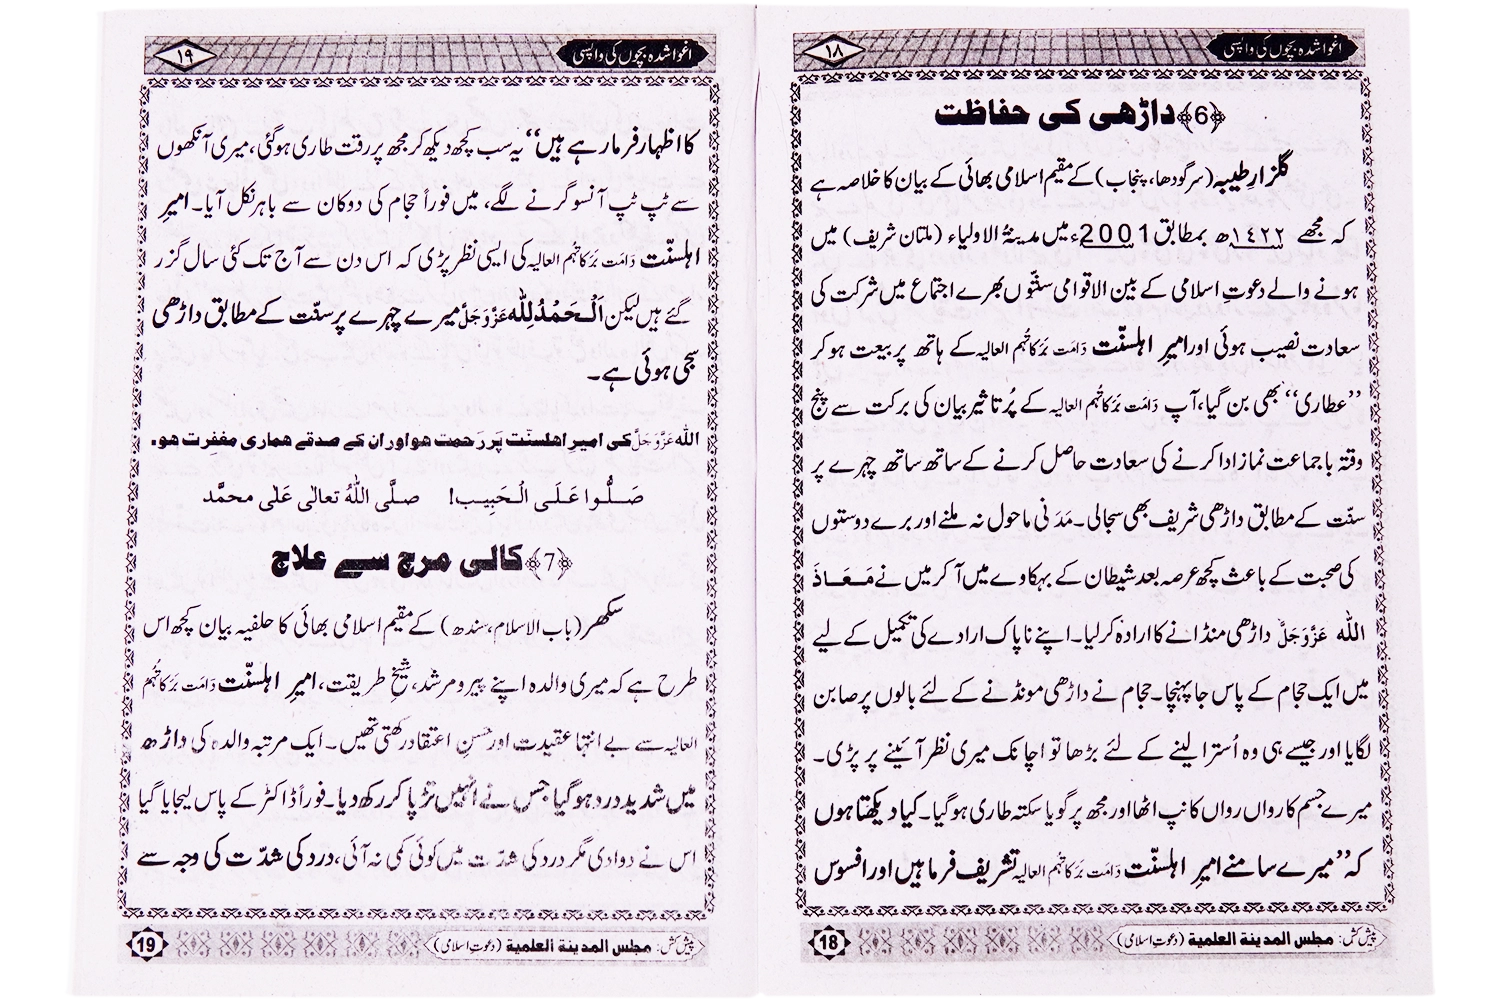 اغوا شدہ بچوں کی واپسی
۱۸
﴿6﴾ داڑھی کی حفاظت
گلزارِ طیبہ (سرگودھا، پنجاب) کے مقیم اسلامی بھائی کے بیان کا خلاصہ ہے
کہ مجھے ۱۴۲۲ھ بمطابق 2001ء میں مدینۃُ الاولیاء (ملتان شریف) میں
ہونے والے دعوتِ اسلامی کے بین الاقوامی سنّتوں بھرے اجتماع میں شرکت کی
سعادت نصیب ہوئی اور امیرِ اہلسنّت دَامَت بَرَکاتُہُم العالیہ کے ہاتھ پر بیعت ہو کر
’’عطاری‘‘ بھی بن گیا، آپ دَامَت بَرَکاتُہُم العالیہ کے پُر تاثیر بیان کی برکت سے پنج
وقتہ با جماعت نماز ادا کرنے کی سعادت حاصل کرنے کے ساتھ ساتھ چہرے پر
سنّت کے مطابق داڑھی شریف بھی سجالی۔ مَدَنی ماحول نہ ملنے اور برے دوستوں
کی صحبت کے باعث کچھ عرصہ بعد شیطان کے بہکاوے میں آ کر میں نے مَـعَـاذَ
اللہ عَزَّوَجَلَّ داڑھی منڈانے کا ارادہ کر لیا۔ اپنے ناپاک ارادے کی تکمیل کے لیے
میں ایک حجام کے پاس جا پہنچا۔ حجام نے داڑھی مونڈنے کے لئے بالوں پر صابن
لگایا اور جیسے ہی وہ اُسترا لینے کے لئے بڑھا تو اچانک میری نظر آئینے پر پڑی۔
میرے جسم کا رواں رواں کانپ اٹھا اور مجھ پر گویا سکتہ طاری ہو گیا۔ کیا دیکھتا ہوں
کہ ’’میرے سامنے امیرِ اہلسنّت دَامَت بَرَکاتُہُم العالیہ تشریف فرما ہیں اور افسوس
پیش کش: مجلس المدینۃ العلمیۃ (دعوتِ اسلامی)
18
اغوا شدہ بچوں کی واپسی
۱۹
کا اظہار فرما رہے ہیں‘‘ یہ سب کچھ دیکھ کر مجھ پر رقت طاری ہو گئی، میری آنکھوں
سے ٹپ ٹپ آنسو گرنے لگے، میں فوراً حجام کی دوکان سے باہر نکل آیا۔ امیرِ
اہلسنّت دَامَت بَرَکاتُہُم العالیہ کی ایسی نظر پڑی کہ اس دن سے آج تک کئی سال گزر
گئے ہیں لیکن اَلْـحَمْدُلِلّٰہ عَزَّوَجَلَّ میرے چہرے پر سنّت کے مطابق داڑھی
سجی ہوئی ہے۔
اللہ عَزَّوَجَلَّ کی امیرِ اھلسنّت پَر رَحمت ھو اور ان کے صدقے ھماری مغفِرت ھو۔
صَـلُّوا عَـلَـی الْـحَبِیـب! صلَّی اللّٰہُ تعالٰی عَلٰی محمَّد
﴿7﴾ کالی مرچ سے علاج
سکھر (باب الاسلام، سندھ) کے مقیم اسلامی بھائی کا حلفیہ بیان کچھ اس
طرح ہے کہ میری والدہ اپنے پیر و مرشد، شیخِ طریقت، امیرِ اہلسنّت دَامَت بَرَکاتُہُم
العالیہ سے بے انتہا عقیدت اور حسنِ اعتقاد رکھتی تھیں۔ ایک مرتبہ والدہ کی داڑھ
میں شدید درد ہو گیا جس نے انہیں تڑپا کر رکھ دیا۔ فوراً ڈاکٹر کے پاس لیجایا گیا
اس نے دوا دی مگر درد کی شدّت میں کوئی کمی نہ آئی، درد کی شدّت کی وجہ سے
پیش کش: مجلس المدینۃ العلمیۃ (دعوتِ اسلامی)
19